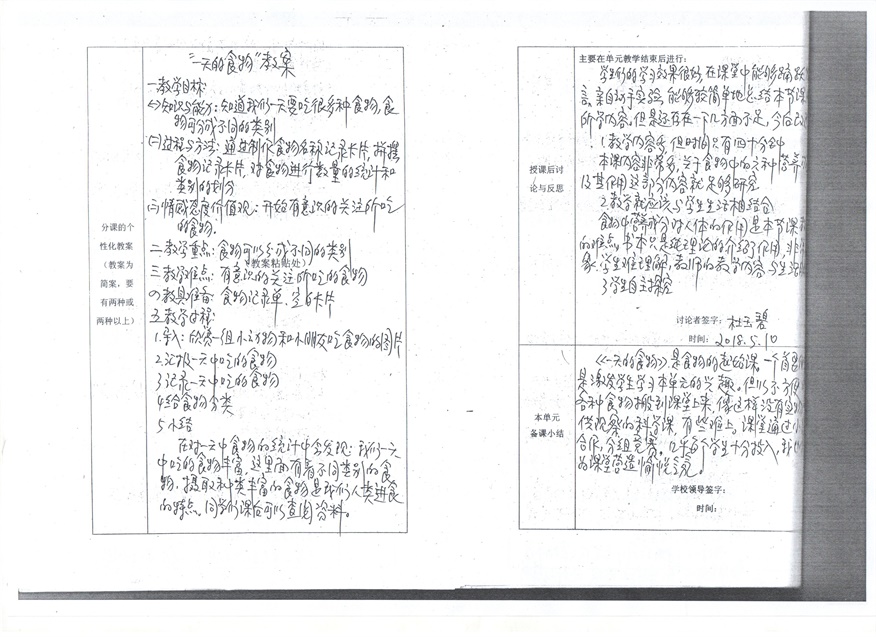 分课的个
性化教案
（教案为
简案，要
有两种或
两种以上）
"一天的食物"教案
一教学目标:
(一)知识与能力: 知道我们一天要吃很多种食物,食
物可分成不同的类别
(二)过程与方法: 通过制作食物名称记录卡片, 并摆
食物记录卡片, 对食物进行数量的统计和
类别的划分
(三)情感态度价值观: 开始有意识的关注所吃
的食物.
二教学重点: 食物可以分成不同的类别
（教案粘贴处）
三教学难点: 有意识的关注所吃的食物
四教具准备: 食物记录单、空白卡片
五教学过程:
1.导入: 欣赏一组小动物和小朋友吃食物的图片
2.汇报一天中吃的食物
3记录一天中吃的食物
4给食物分类
5小结
在对一天中食物的统计中会发现: 我们一天
中吃的食物丰富, 这里面有着不同类别的食
物. 摄取种类丰富的食物是我们人类进食
的特点. 同学们课后可以查阅资料。
授课后讨
论与反思
主要在单元教学结束后进行:
学生们的学习效果很好, 在课堂中能够踊跃
言, 亲自动手实验, 能够较简单地总结本节课
所学内容. 但是还存在一个几方面不足, 今后
1教学内容多, 但时间只有四十分钟
本课内容非常多, 关于食物中的各种营养
及其作用这部分内容就足够研究
2教学就应该与学生生活相结合
食物中营养成分对人体的作用是本节课
的难点. 书本只是纯理论的介绍了作用, 非
象. 学生难理解, 教师的教学内容与生活
3学生自主探究
讨论者签字: 杜玉碧
时间: 2018.5.10
本单元
备课小结
《一天的食物》是食物的起始课. 一个首要
是激发学生学习本单元的兴趣。但以不方便
各种食物搬到课堂上来, 像这样没有实物
供观察的科学课, 有些难上。课堂通过小
合作, 分组竞赛。几乎每个学生十分投入,
为课堂营造愉悦之氛。
学校领导签字:
时间: